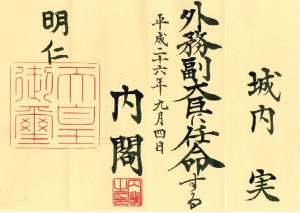 城内 実
外務副大臣に任命する
平成二十六年九月四日
内閣
明仁
天皇
御璽